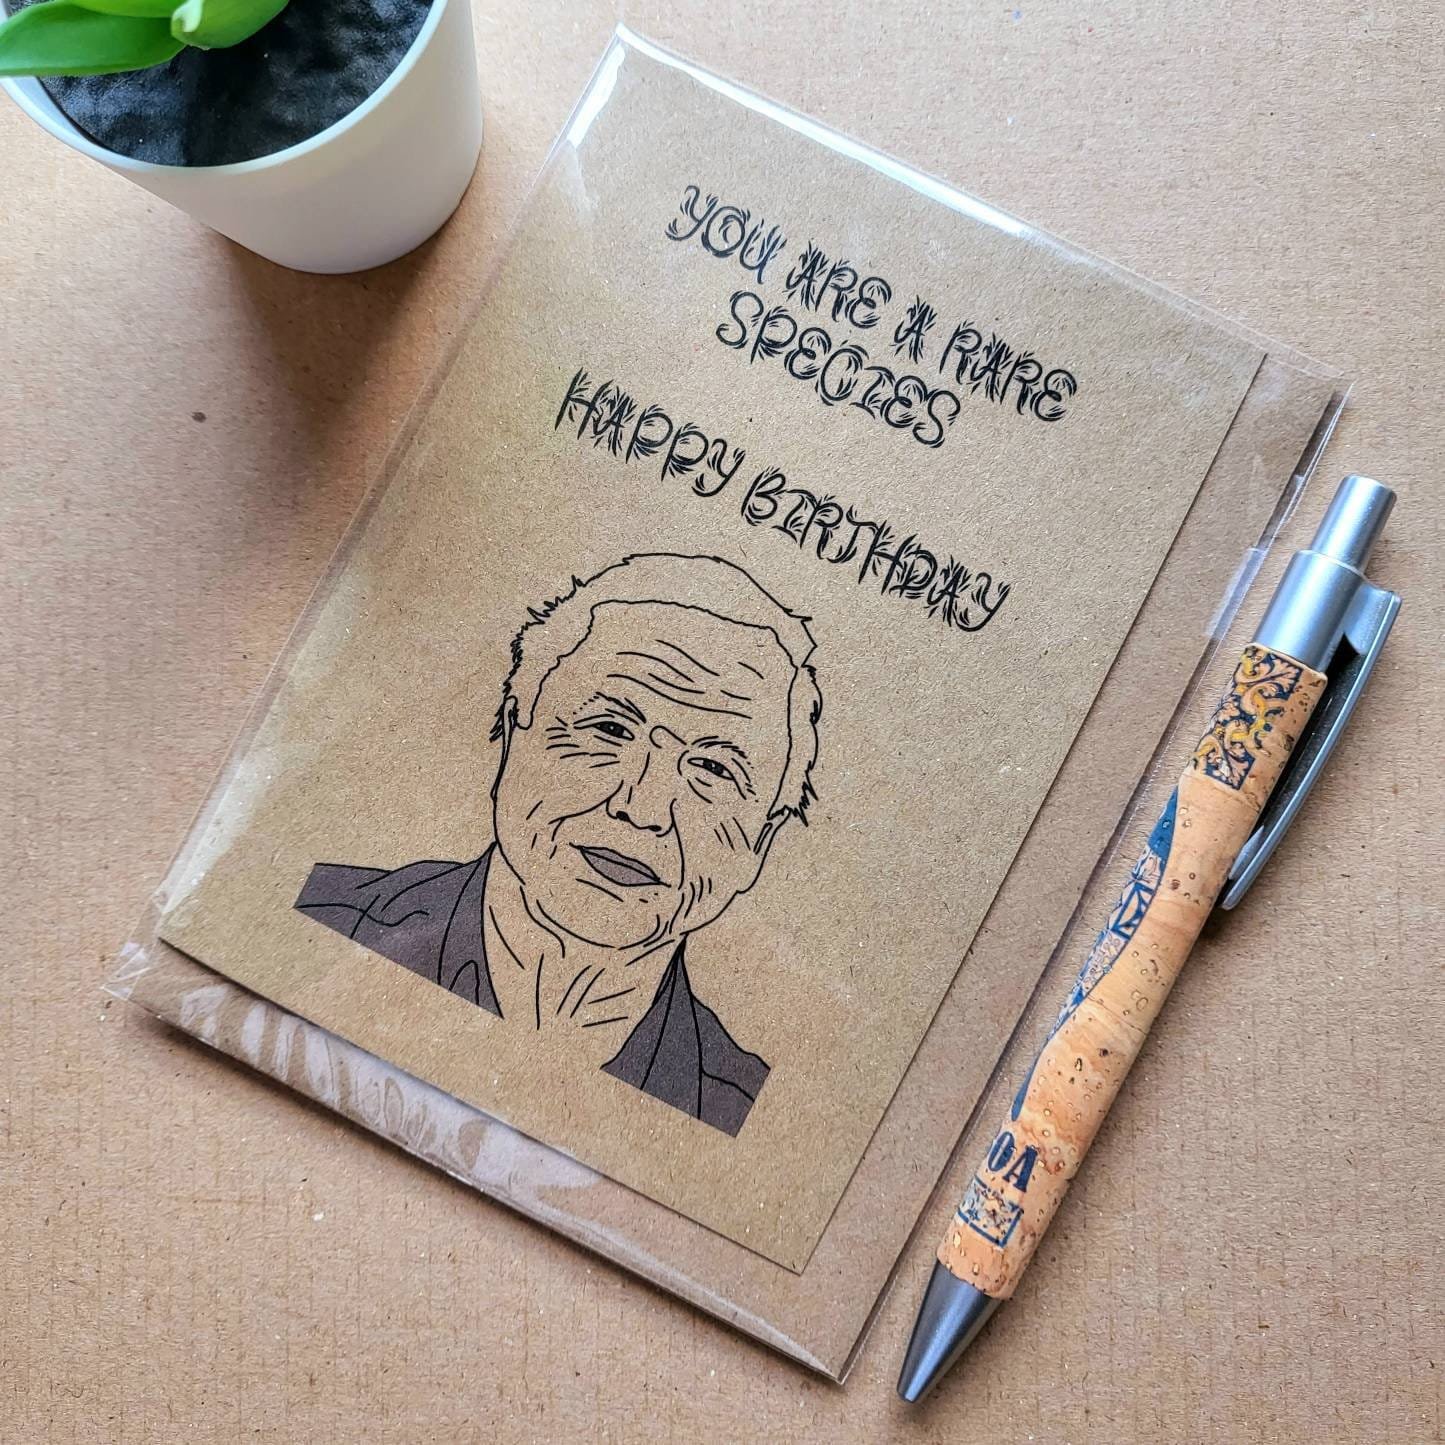 YOU ARE A RARE
SPECIES
HAPPY BIRTHDAY
OA